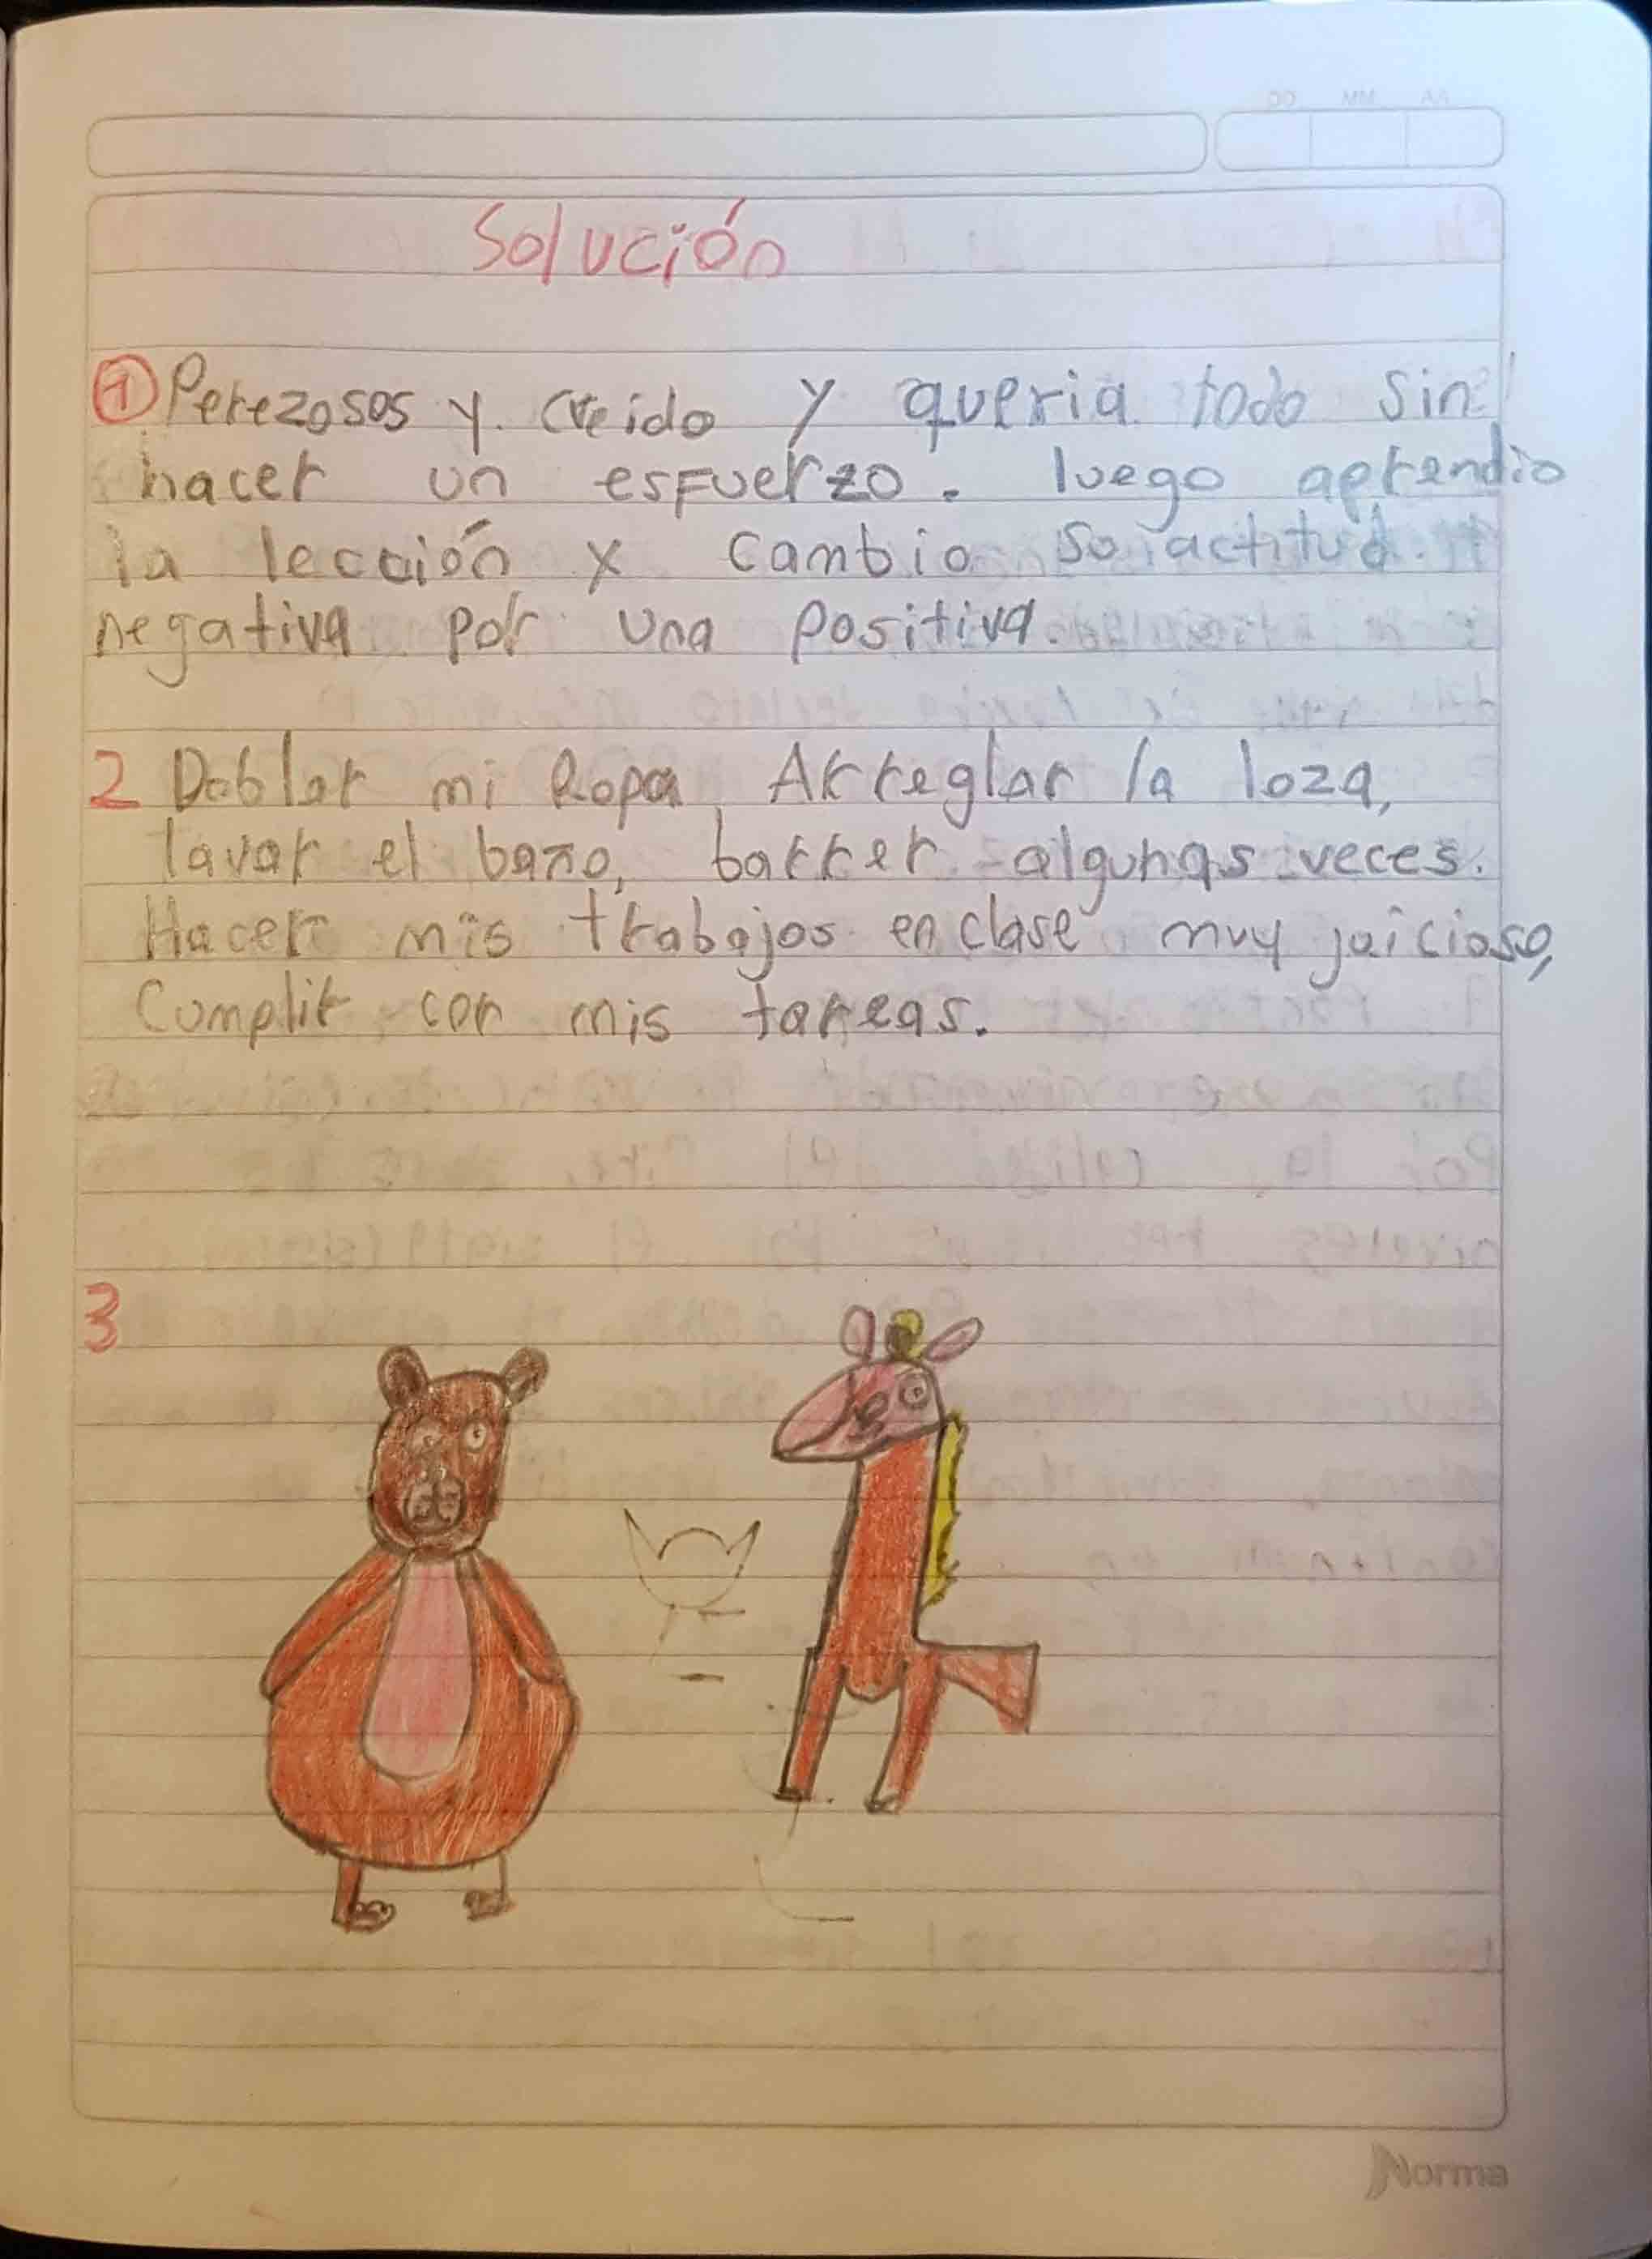 Solución
1 Perezosos y creido y queria todo sin
hacer un esfuerzo. luego aprendio
la lección y cambio su actitud.
negativa por una positiva.
2 Doblar mi Ropa, Arreglar la loza,
lavar el baño, barrer algunas veces.
Hacer mis trabajos en clase muy juicioso,
Cumplir con mis tareas.
3
Norma